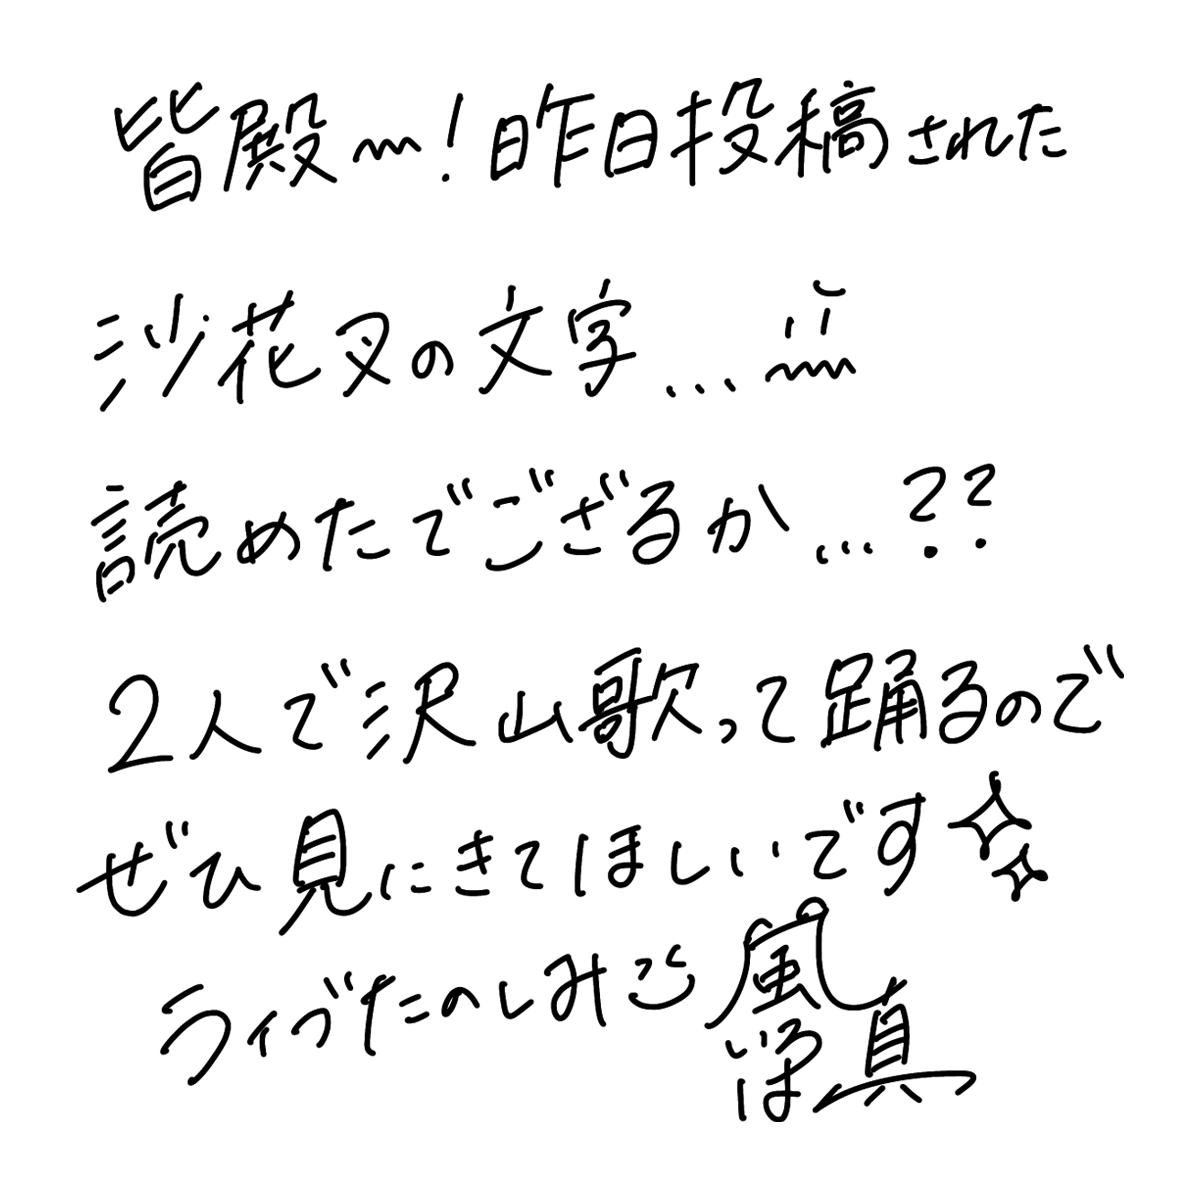 皆殿〜!昨日投稿された
沙花叉の文字...
読めたでござるか...??
2人で沢山歌って踊るので
ぜひ見にきてほしいです
ライブたのしみ
風真
いろは